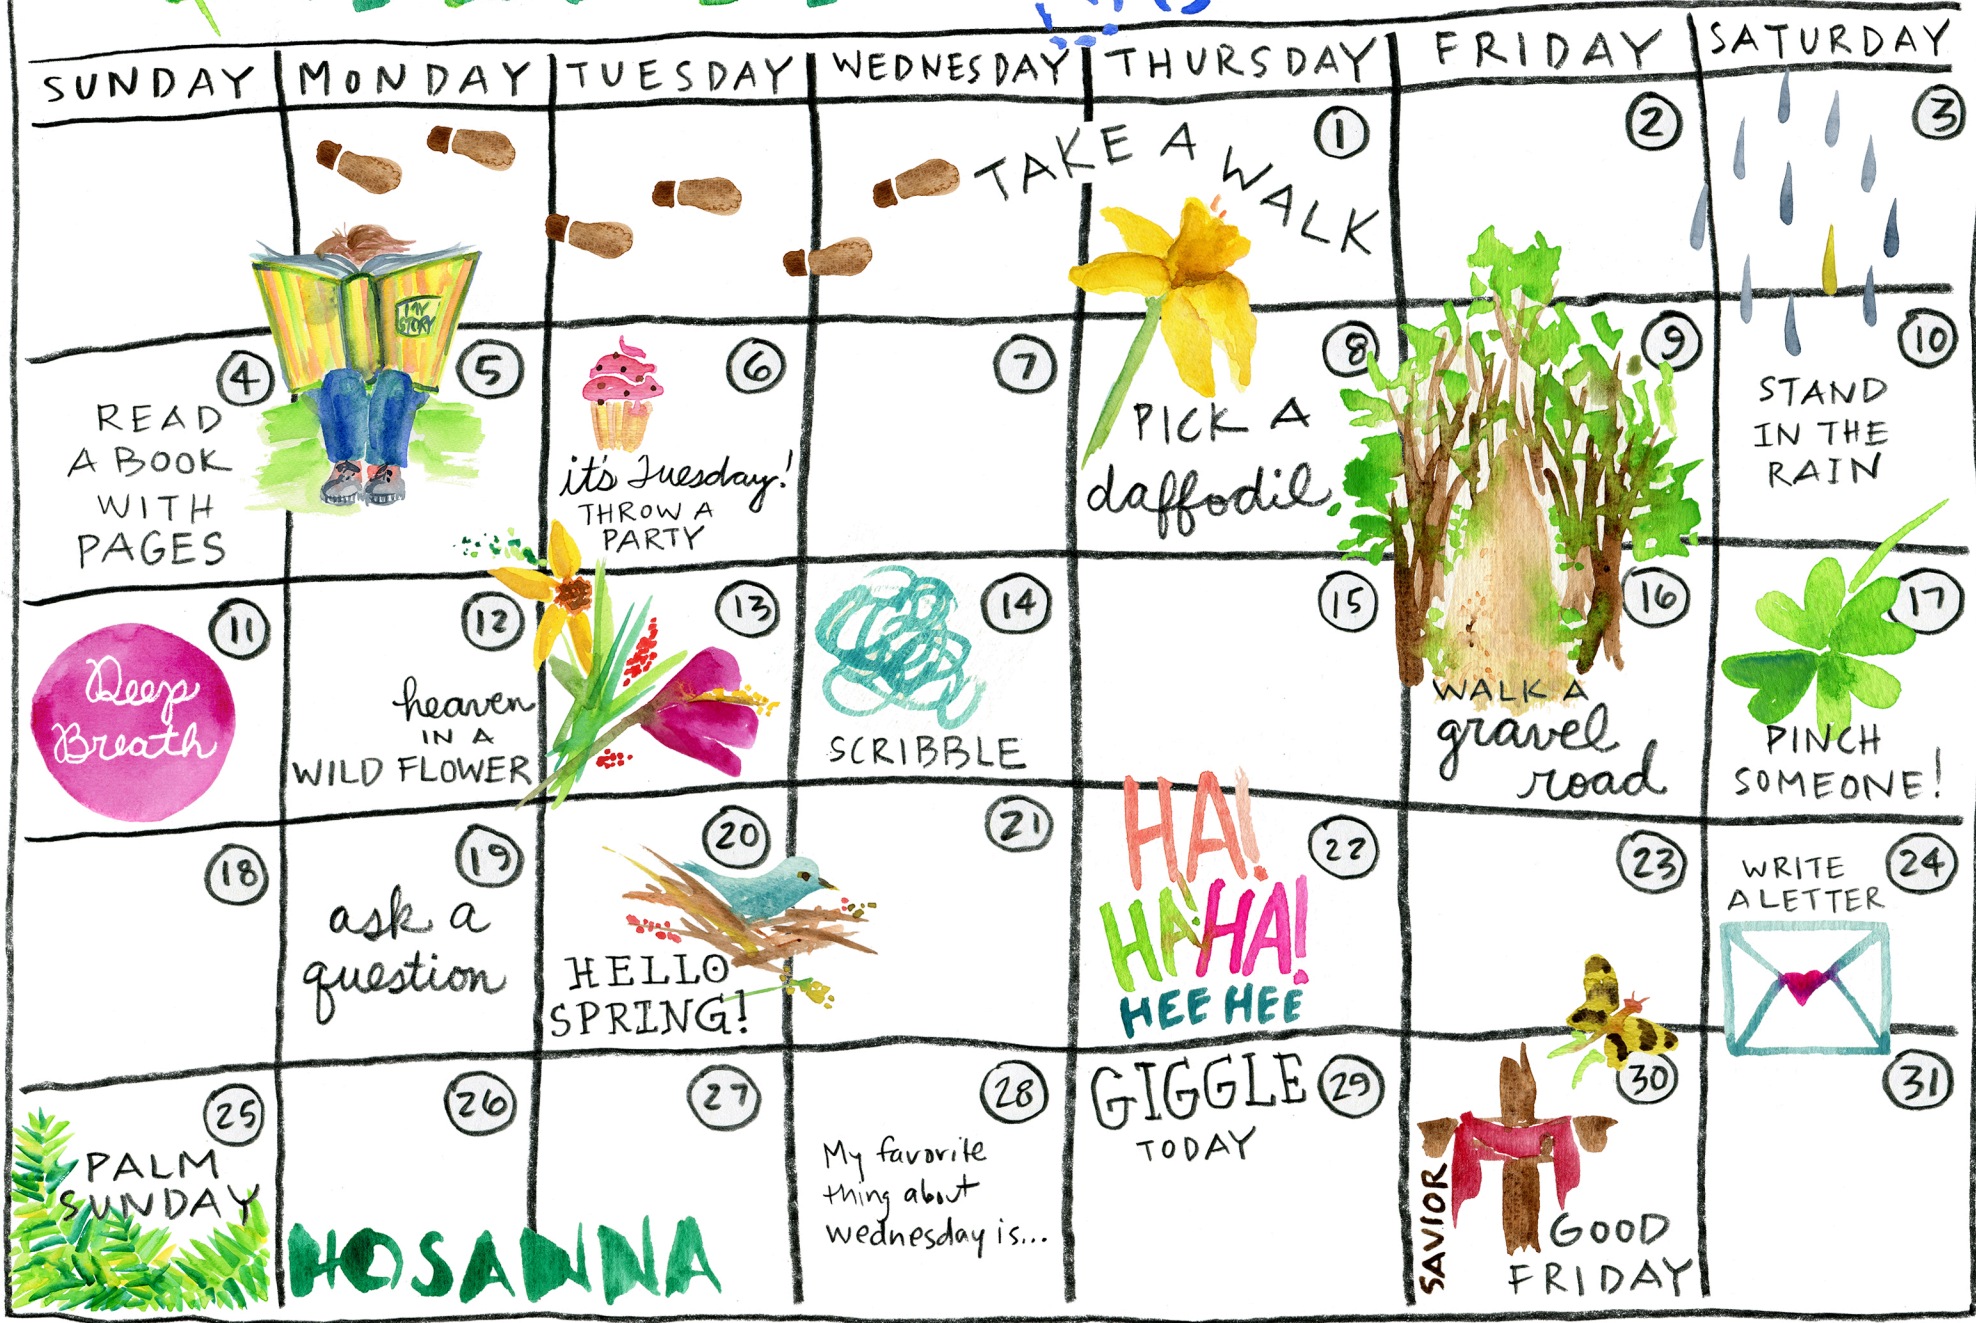 SUNDAY MONDAY TUESDAY WEDNESDAY THURSDAY FRIDAY SATURDAY
TAKE A WALK
1
2
3
MY
STORY
4
READ
A BOOK
WITH
PAGES
5
6
it's Tuesday!
THROW A
PARTY
7
8
PICK A
daffodil
9
10
STAND
IN THE
RAIN
11
Deep
Breath
12
heaven
IN A
WILD FLOWER
13
14
SCRIBBLE
15
16
WALK A
gravel
road
17
PINCH
SOMEONE!
18
19
ask a
question
20
HELLO
SPRING!
21
22
HA!
HA HA!
HEE HEE
23
24
WRITE
A LETTER
25
PALM
SUNDAY
26
27
HOSANNA
28
My favorite
thing about
wednesday is...
GIGGLE 29
TODAY
30
SAVIOR
GOOD
FRIDAY
31